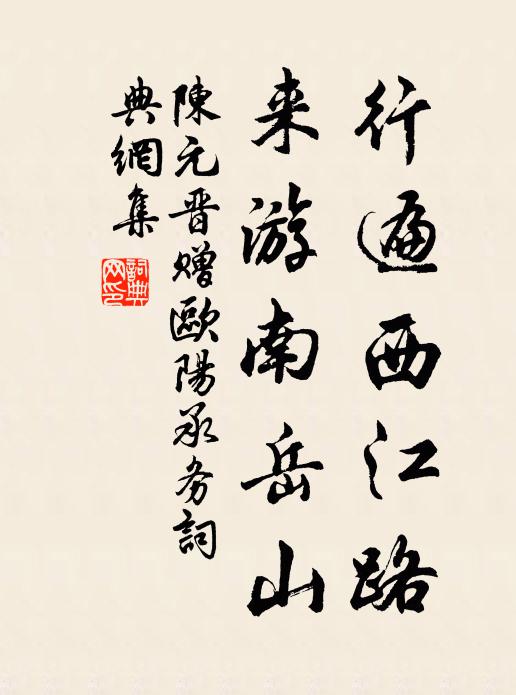 行遍西江路
来游南岳山
陳元晋赠歐陽承务詞
典網集
詞典网印